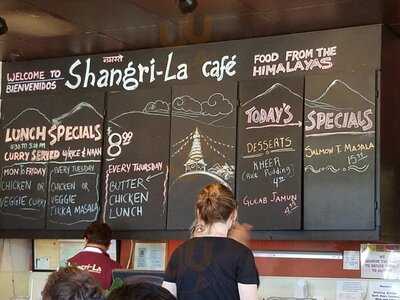 WELCOME TO
BIENVENIDOS
नमस्ते
Shangri-La café
FOOD FROM THE
HIMALAYAS
LUNCH SPECIALS
CURRY SERVED W/RICE & NAAN
MON TO FRIDAY
CHICKEN OR
VEGGIE CURRY
EVERY TUESDAY
CHICKEN OR
VEGGIE
TIKKA MASALA
8.99
EVERY THURSDAY
BUTTER
CHICKEN
LUNCH
TODAY'S
DESSERTS
KHEER
(RICE PUDDING)
4.99
GULAB JAMUN
4.99
SPECIALS
SALMON T. MASALA
15.99